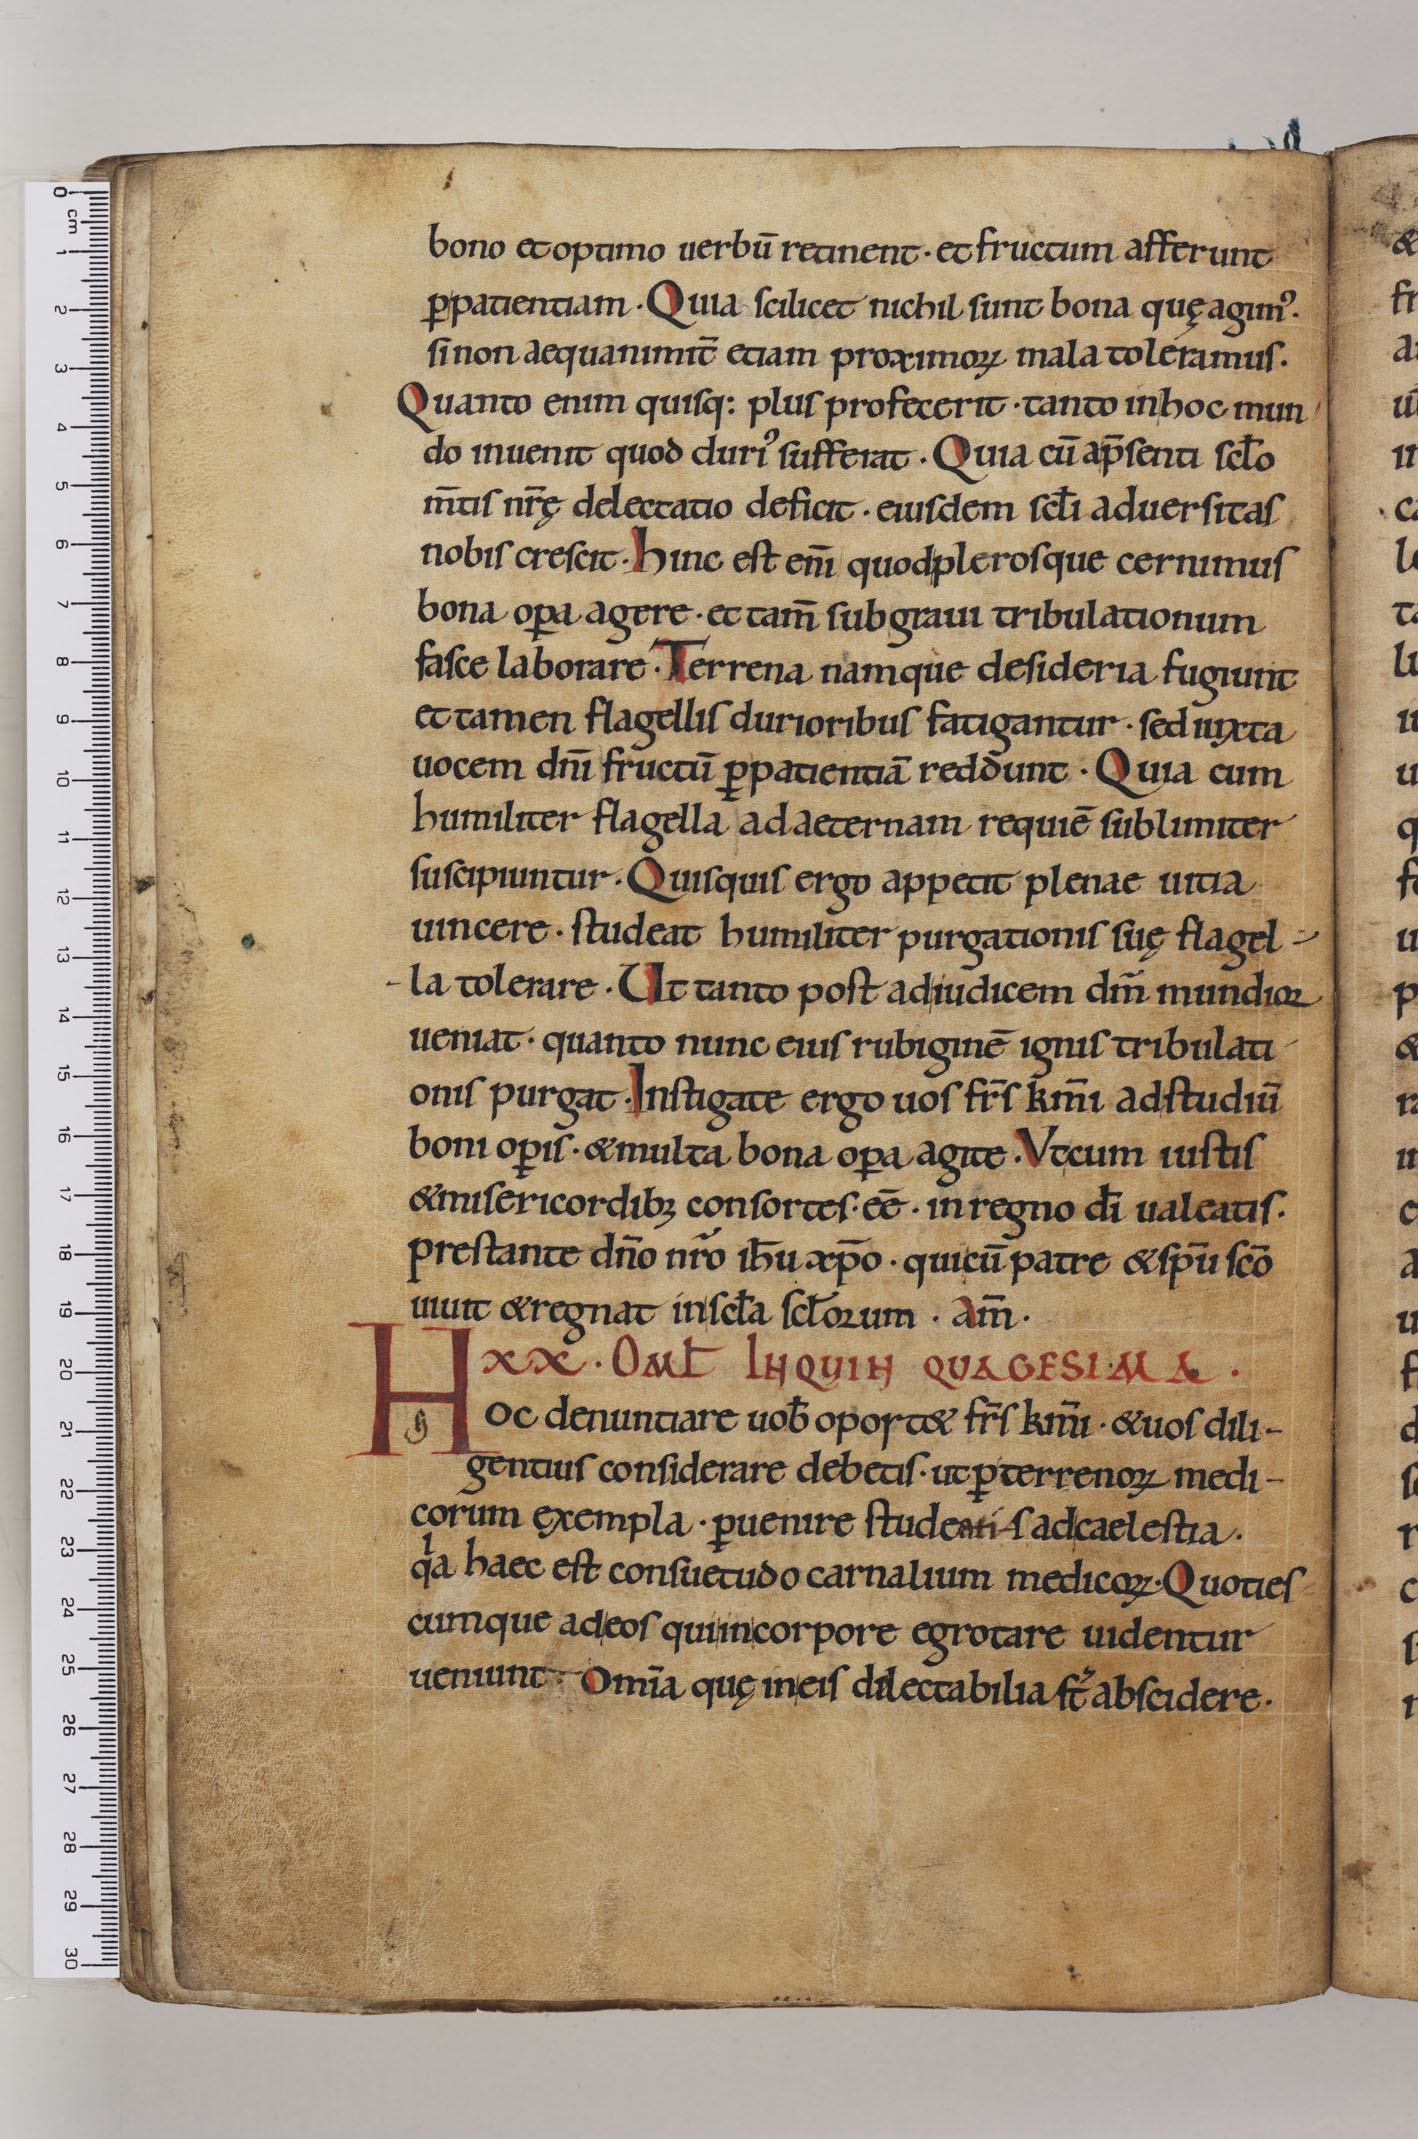 bono et optimo uerbū retinent · et fructum afferunt
ꝑpatientiam · Quia scilicet nichil sunt bona quę agimꝰ·
si non aequanimit̄ etiam proximoꝝ mala toleramus·
Quanto enim quisq: plus profecerit · tanto in hoc mun
do inuenit quod duriꝰ sufferat · Quia cū a p̄senti scło
m̄tis nr̄ę delectatio deficit · eiusdem scłi aduersitas
nobis crescit · hinc est eni̅ quod plerosque cernimus
bona oꝑa agere · et tam̄ sub graui tribulationum
fasce laborare · Terrena namque desideria fugiunt
et tamen flagellis durioribus fatigantur · sed iuxta
uocem dn̄i fructū ꝑ patientiā reddunt · Quia cum
humiliter flagella ad aeternam requiē sublimiter
suscipiuntur · Quisquis ergo appetit plenae uitia
uincere · studeat humiliter purgationis suę flagel-
-la tolerare · Ut tanto post ad iudicem dm̄ mundior
ueniat · quanto nunc eius rubiginē ignis tribulati
onis purgat · Instigate ergo uos fr̄s km̄i ad studiū
boni oꝑis · & multa bona oꝑa agite · Vt cum iustis
& misericordibꝫ consortes · eē · in regno dī ualeatis ·
prestante dn̄o nr̄o ih̄u xp̄o · qui cū patre & sp̄u sc̄o
uiuit & regnat in scła scłorum · am̄ ·
xx · Omł In quinquagesima ·
Hoc denuntiare uob̄ oportet fr̄s km̄i · & uos dili-
gentius considerare debetis · ut ꝑ terrenoꝝ medi-
corum exempla · ꝑuenire studeatis ad caelestia ·
qia haec est consuetudo carnalium medicoꝝ · Quoties
cumque ad eos qui in corpore egrotare uidentur
ueniunt · Omīa quę in eis dilectabilia st̄ abscidere ·